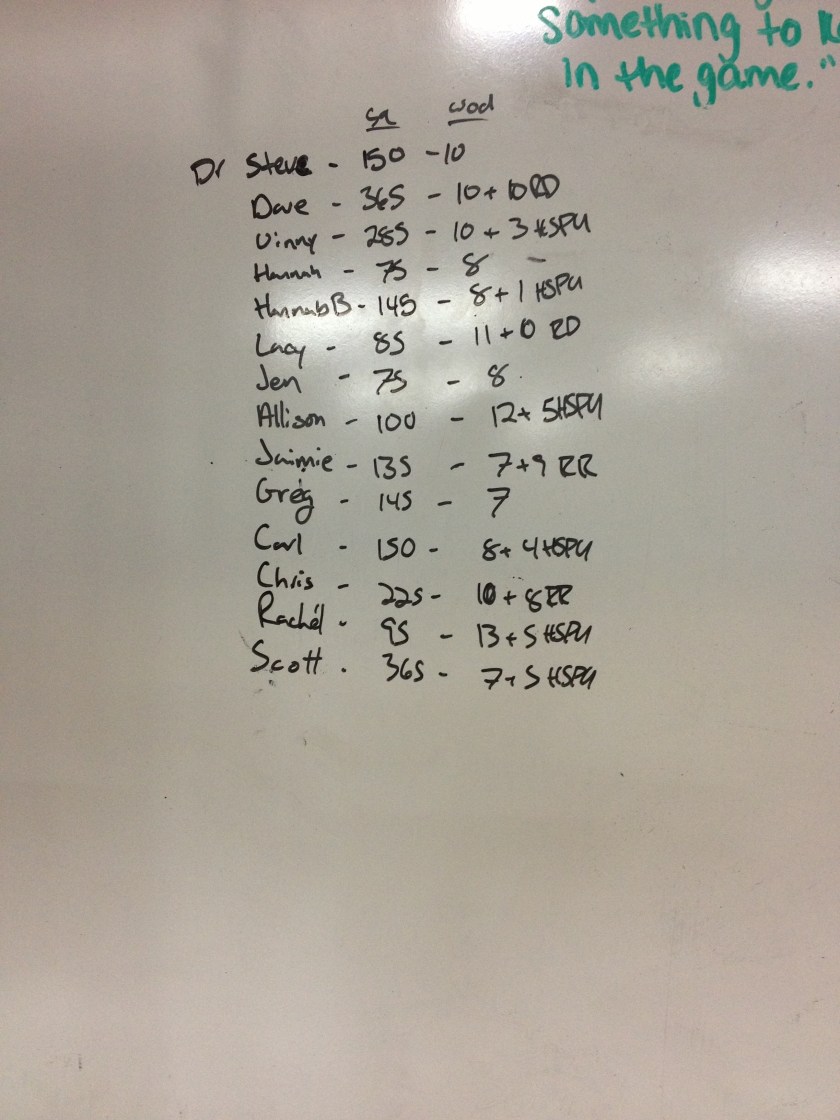 Something to
in the game."
wod
Dr Steve - 150 - 10
Dave - 365 - 10 + 10 RD
Vinny - 285 - 10 + 3 HSPU
Hannah - 75 - 8
Hannah B - 145 - 8 + 1 HSPU
Lacy - 85 - 11 + 0 RD
Jen - 75 - 8
Allison - 100 - 12 + 5 HSPU
Jaimie - 135 - 7 + 9 RR
Greg - 145 - 7
Carl - 150 - 8 + 4 HSPU
Chris - 225 - 10 + 8 RR
Rachél - 95 - 13 + 5 HSPU
Scott - 365 - 7 + 5 HSPU